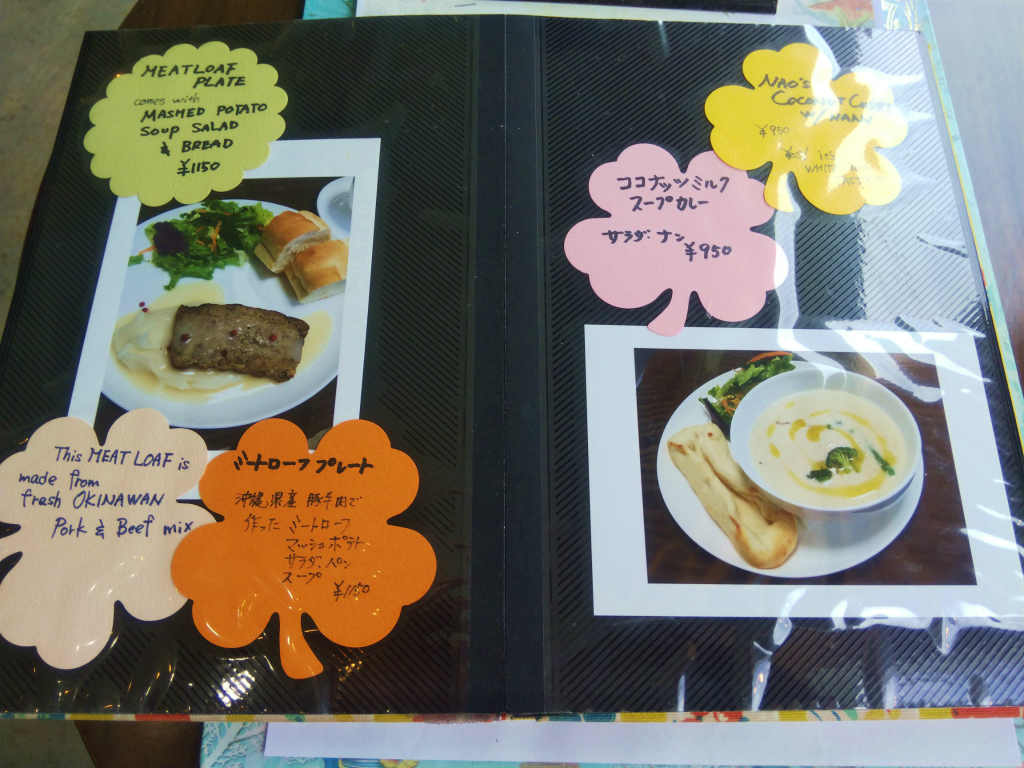 MEATLOAF
PLATE
comes with
MASHED POTATO
SOUP SALAD
& BREAD
¥1150
This MEAT LOAF is
made from
fresh OKINAWAN
Pork & Beef mix
ミートローフ プレート
沖縄県産 豚牛肉で
作った ミートローフ
マッシュポテト
サラダ、パン
スープ
¥1150
ココナッツミルク
スープカレー
サラダ、ナン
¥950
NAO'S
COCONUT CURRY
W/NANN
¥950
it's
WHITE